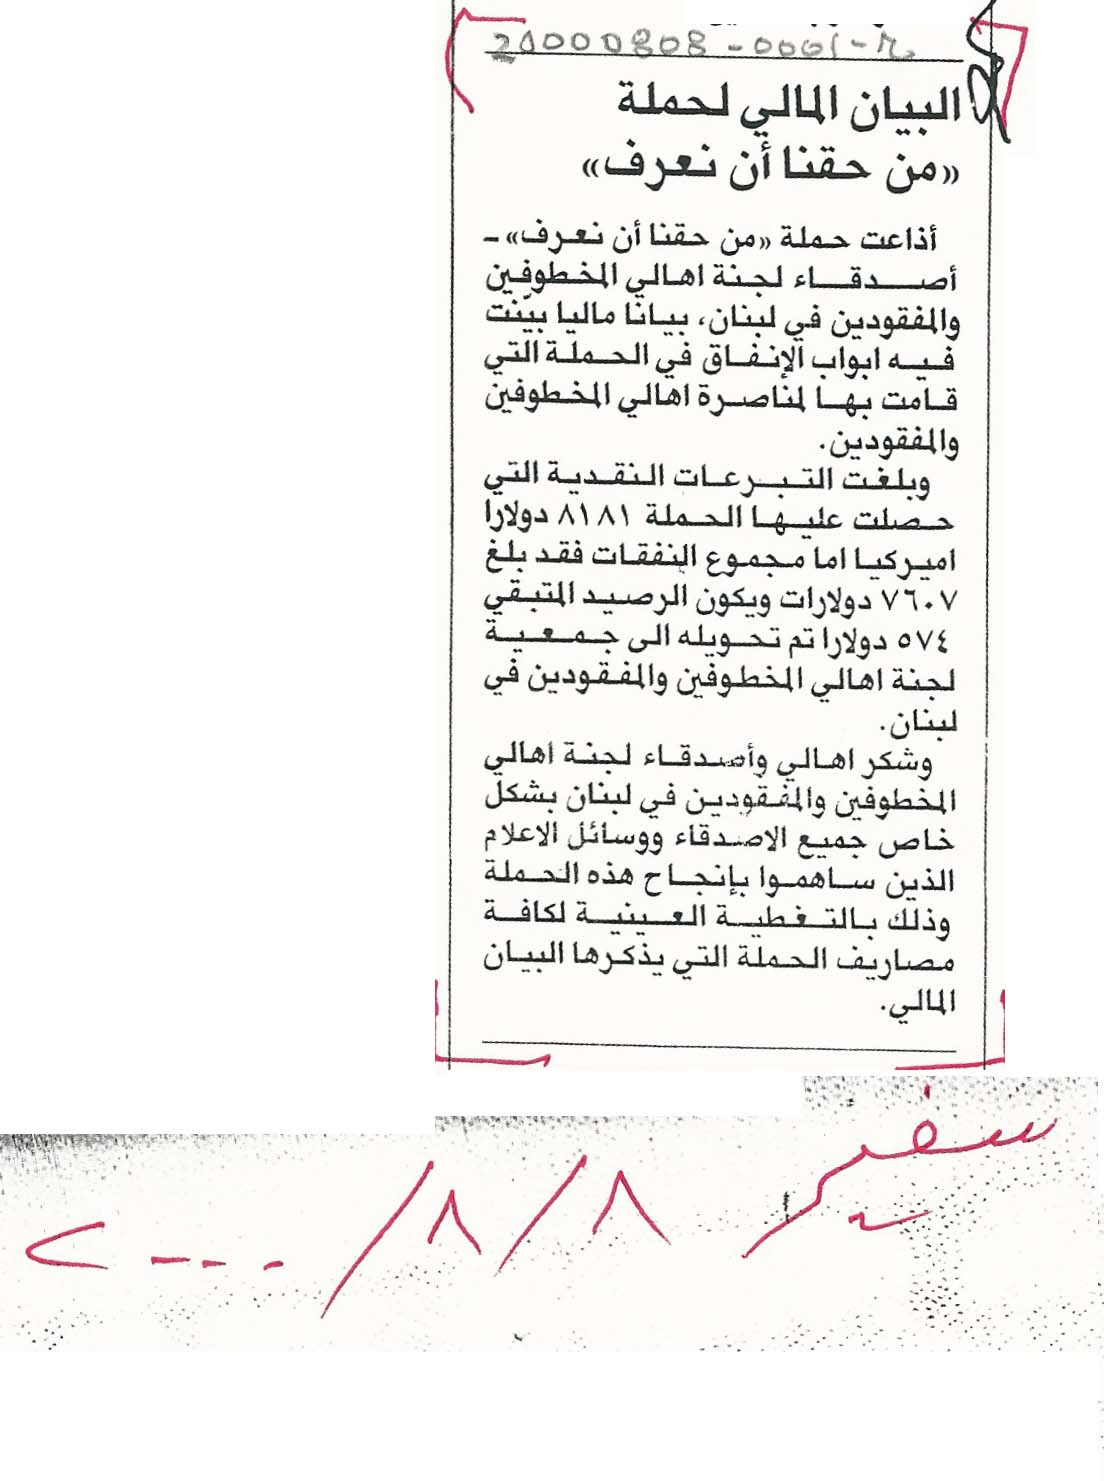 20000808-0001-M
البيان المالي لحملة
«من حقنا أن نعرف»
أذاعت حملة «من حقنا أن نعرف» ـ
أصدقاء لجنة اهالي المخطوفين
والمفقودين في لبنان، بيانا ماليا بيّنت
فيه ابواب الإنفاق في الحملة التي
قامت بها لمناصرة اهالي المخطوفين
والمفقودين.
وبلغت التبرعات النقدية التي
حصلت عليها الحملة ٨١٨١ دولارا
اميركيا اما مجموع النفقات فقد بلغ
٧٦٠٧ دولارات ويكون الرصيد المتبقي
٥٧٤ دولارا تم تحويله الى جمعية
لجنة اهالي المخطوفين والمفقودين في
لبنان.
وشكر اهالي وأصدقاء لجنة اهالي
المخطوفين والمفقودين في لبنان بشكل
خاص جميع الاصدقاء ووسائل الاعلام
الذين ساهموا بإنجاح هذه الحملة
وذلك بالتغطية العينية لكافة
مصاريف الحملة التي يذكرها البيان
المالي.
سفير ٨/٨/٢٠٠٠